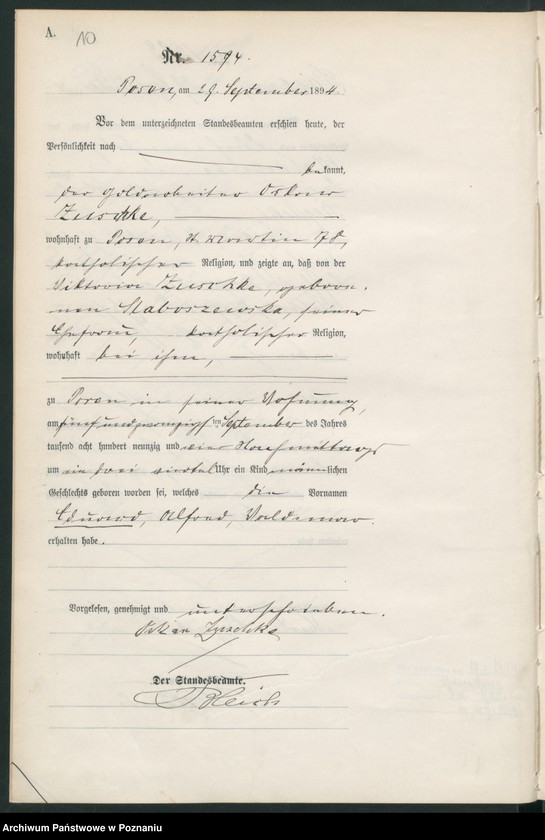 A. 10
Nr. 1594.
Posen, am 29. September 1894.
Vor dem unterzeichneten Standesbeamten erschien heute, der
Persönlichkeit nach
bekannt,
der Goldarbeiter Oskar
Zuschke,
wohnhaft zu Posen, St. Martin 78,
katholischer Religion, und zeigte an, daß von der
Viktoria Zuschke, gebore-
nen Slaboszewska, seiner
Ehefrau, katholischer Religion,
wohnhaft bei ihm,
zu Posen in seiner Wohnung,
am fünfundzwanzigsten September des Jahres
tausend acht hundert neunzig und vier Nachmittags
um ein drei viertel Uhr ein Kind männlichen
Geschlechts geboren worden sei, welches die Vornamen
Eduard, Alfred, Waldemar
erhalten habe.
Vorgelesen, genehmigt und unterschrieben.
Oskar Zuschke
Der Standesbeamte.
Archiwum Państwowe w Poznaniu